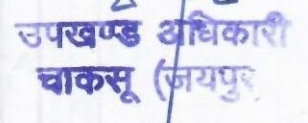 उपखण्ड अधिकारी
चाकसू (जयपुर